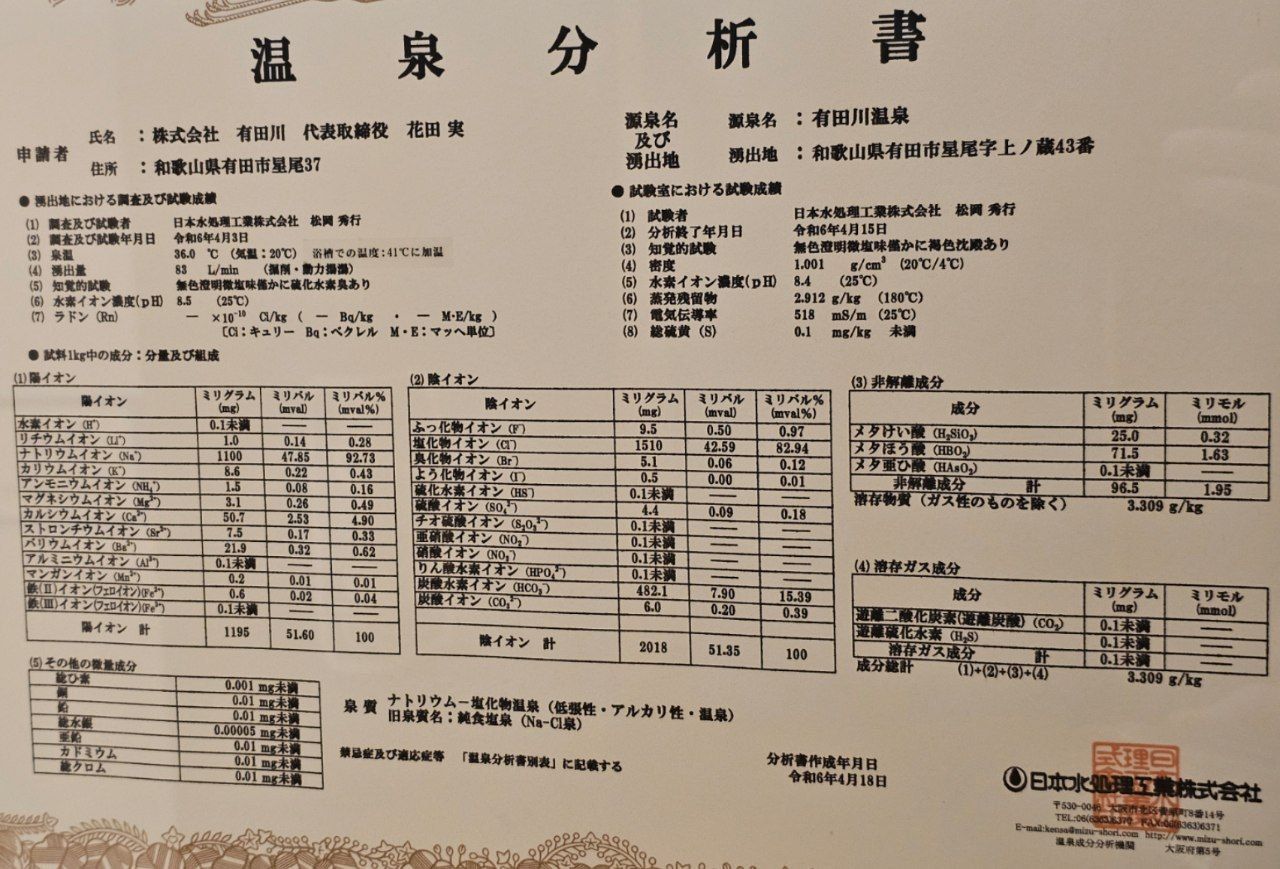 温泉分析書
申請者
氏名 ：株式会社 有田川 代表取締役 花田 実
住所 ：和歌山県有田市星尾37
源泉名及び湧出地
源泉名 ：有田川温泉
湧出地 ：和歌山県有田市星尾字上ノ蔵43番
● 湧出地における調査及び試験成績
(1) 調査及び試験者 日本水処理工業株式会社 松岡 秀行
(2) 調査及び試験年月日 令和6年4月3日
(3) 泉温 36.0 ℃ （気温：20℃） 浴槽での温度：41℃に加温
(4) 湧出量 83 L/min （掘削・動力揚湯）
(5) 知覚的試験 無色澄明微塩味僅かに硫化水素臭あり
(6) 水素イオン濃度(pH) 8.5 (25℃)
(7) ラドン(Rn) — ×10⁻¹⁰ Ci/kg ( — Bq/kg ・ — M・E/kg )
［Ci：キュリー Bq：ベクレル M・E：マッヘ単位］
● 試験室における試験成績
(1) 試験者 日本水処理工業株式会社 松岡 秀行
(2) 分析終了年月日 令和6年4月15日
(3) 知覚的試験 無色澄明微塩味僅かに褐色沈殿あり
(4) 密度 1.001 g/cm³ (20℃/4℃)
(5) 水素イオン濃度(pH) 8.4 (25℃)
(6) 蒸発残留物 2.912 g/kg (180℃)
(7) 電気伝導率 518 mS/m (25℃)
(8) 総硫黄 (S) 0.1 mg/kg 未満
● 試料1kg中の成分：分量及び組成
(1) 陽イオン
陽イオン ミリグラム(mg) ミリバル(mval) ミリバル%(mval%)
水素イオン (H⁺) 0.1未満 — —
リチウムイオン (Li⁺) 1.0 0.14 0.28
ナトリウムイオン (Na⁺) 1100 47.85 92.73
カリウムイオン (K⁺) 8.6 0.22 0.43
アンモニウムイオン (NH₄⁺) 1.5 0.08 0.16
マグネシウムイオン (Mg²⁺) 3.1 0.26 0.49
カルシウムイオン (Ca²⁺) 50.7 2.53 4.90
ストロンチウムイオン (Sr²⁺) 7.5 0.17 0.33
バリウムイオン (Ba²⁺) 21.9 0.32 0.62
アルミニウムイオン (Al³⁺) 0.1未満 — —
マンガンイオン (Mn²⁺) 0.2 0.01 0.01
鉄(II)イオン(フェロイオン)(Fe²⁺) 0.6 0.02 0.04
鉄(III)イオン(フェロイオン)(Fe³⁺) 0.1未満 — —
陽イオン 計 1195 51.60 100
(2) 陰イオン
陰イオン ミリグラム(mg) ミリバル(mval) ミリバル%(mval%)
ふっ化物イオン (F⁻) 9.5 0.50 0.97
塩化物イオン (Cl⁻) 1510 42.59 82.94
臭化物イオン (Br⁻) 5.1 0.06 0.12
よう化物イオン (I⁻) 0.5 0.00 0.01
硫化水素イオン (HS⁻) 0.1未満 — —
硫酸イオン (SO₄²⁻) 4.4 0.09 0.18
チオ硫酸イオン (S₂O₃²⁻) 0.1未満 — —
亜硝酸イオン (NO₂⁻) 0.1未満 — —
硝酸イオン (NO₃⁻) 0.1未満 — —
りん酸水素イオン (HPO₄²⁻) 0.1未満 — —
炭酸水素イオン (HCO₃⁻) 482.1 7.90 15.39
炭酸イオン (CO₃²⁻) 6.0 0.20 0.39
陰イオン 計 2018 51.35 100
(3) 非解離成分
成分 ミリグラム(mg) ミリモル(mmol)
メタけい酸 (H₂SiO₃) 25.0 0.32
メタほう酸 (HBO₂) 71.5 1.63
メタ亜ひ酸 (HAsO₂) 0.1未満 —
非解離成分 計 96.5 1.95
溶存物質（ガス性のものを除く） 3.309 g/kg
(4) 溶存ガス成分
成分 ミリグラム(mg) ミリモル(mmol)
遊離二酸化炭素(遊離炭酸) (CO₂) 0.1未満 —
遊離硫化水素 (H₂S) 0.1未満 —
溶存ガス成分 計 0.1未満 —
成分総計 (1)+(2)+(3)+(4) 3.309 g/kg
(5) その他の微量成分
総ひ素 0.001 mg未満
銅 0.01 mg未満
鉛 0.01 mg未満
総水銀 0.00005 mg未満
亜鉛 0.01 mg未満
カドミウム 0.01 mg未満
総クロム 0.01 mg未満
泉質 ナトリウム－塩化物温泉（低張性・アルカリ性・温泉）
旧泉質名：純食塩泉（Na-Cl泉）
禁忌症及び適応症等 「温泉分析書別表」に記載する
分析書作成年月日
令和6年4月18日
日本水処理工業株式会社
〒530-0046 大阪市北区菅原町8番14号
TEL:06(6363)6370 FAX:06(6363)6371
E-mail:kensa@mizu-shori.com http://www.mizu-shori.com
温泉成分分析機関 大阪府第5号